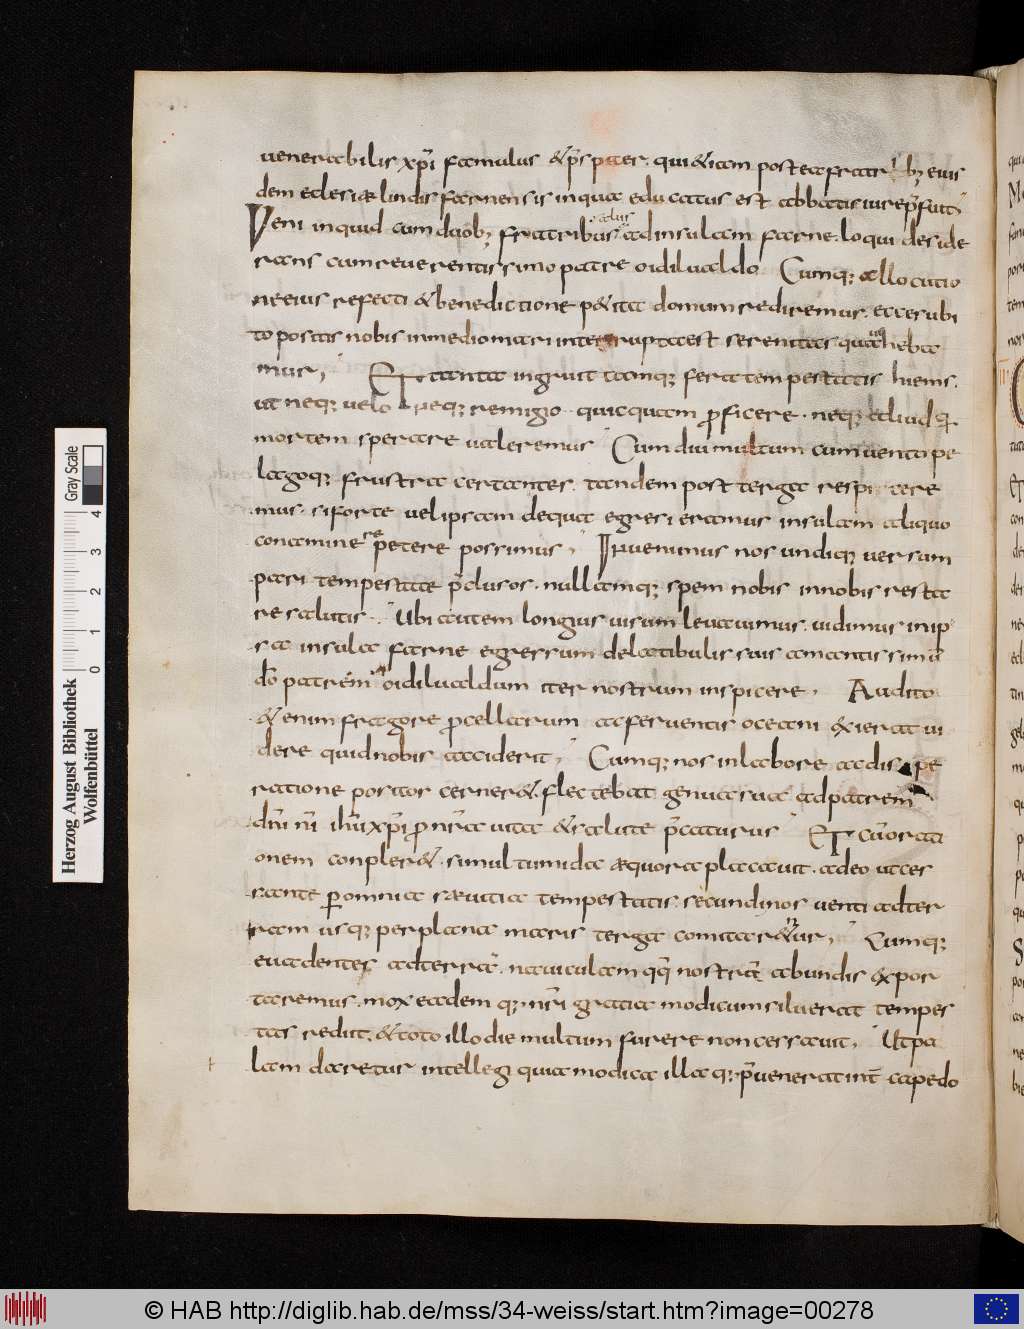 uenerabilis xp̄i famulus & p̄sp̄iter. qui&iam postea fratrib; eius
dem eclesiae lindisfarnensis inqua educatus est abbatis iure p̄fuit
Veni inquid cum duob; fratribus aliis adinsulam farne. loqui deside
rans cum reuerentissimo patre oidilualdo. Cumq; allocutio
ne eius refecti & benedictione p&ita domum rediremus. ecce subi
to positis nobis inmedio mari interrupta est serenitas qua ueheba
mur, ET tanta ingruit tamq; fera tempestatis hiems.
ut neq; uelo neq; remigio quicquam proficere. neq; aliud q̄
mortem sperare ualeremus Cum diu multum cum uento pe
lagoq; frustra certantes. tandem post terga respicere
mus. si forte uel ipsam de qua egresi eramus insulam aliquo
conamine repetere possimus, Inuenimus nos undiq; uersum
pari tempestate p̄clusos. nullamq; spem nobis innobis resta
re salutis. Ubi autem longius uisum leuauimus. uidimus in ip
sa insula farne egressum de latibulis suis amantissimū
dō patrēm oidilualdum iter nostrum inspicere, Audito
& enim fragore procellarum ac feruentis oceani exierat ui
dere quid nobis accideret, Cumq; nos inlabore ac dispe
ratione positos cerner&. flectebat genua sua ad patrem
dn̄i nr̄i ihū xp̄i pro nr̄a uita & salute p̄caturus ET cū orati
onem conpler&. simul tumida aequora placauit. adeo ut ces
sante per omnia saeuitia tempestatis. secundi nos uenti adter
ram usq; per plana maris terga comitarentur, Cumq;
euadentes ad terrā. nauiculam qq̄ nostrā ab undis expor
taremus. mox eadem q; nr̄i gratia modicum siluerat tempes
tas rediit. & toto illo die multum furere non cessauit, Ut pa
lam daretur intellegi quia modica illa q; p̄uenerat int̄capedo
Herzog August Bibliothek
Wolfenbüttel
0 1 2 3 4
Gray Scale
© HAB http://diglib.hab.de/mss/34-weiss/start.htm?image=00278